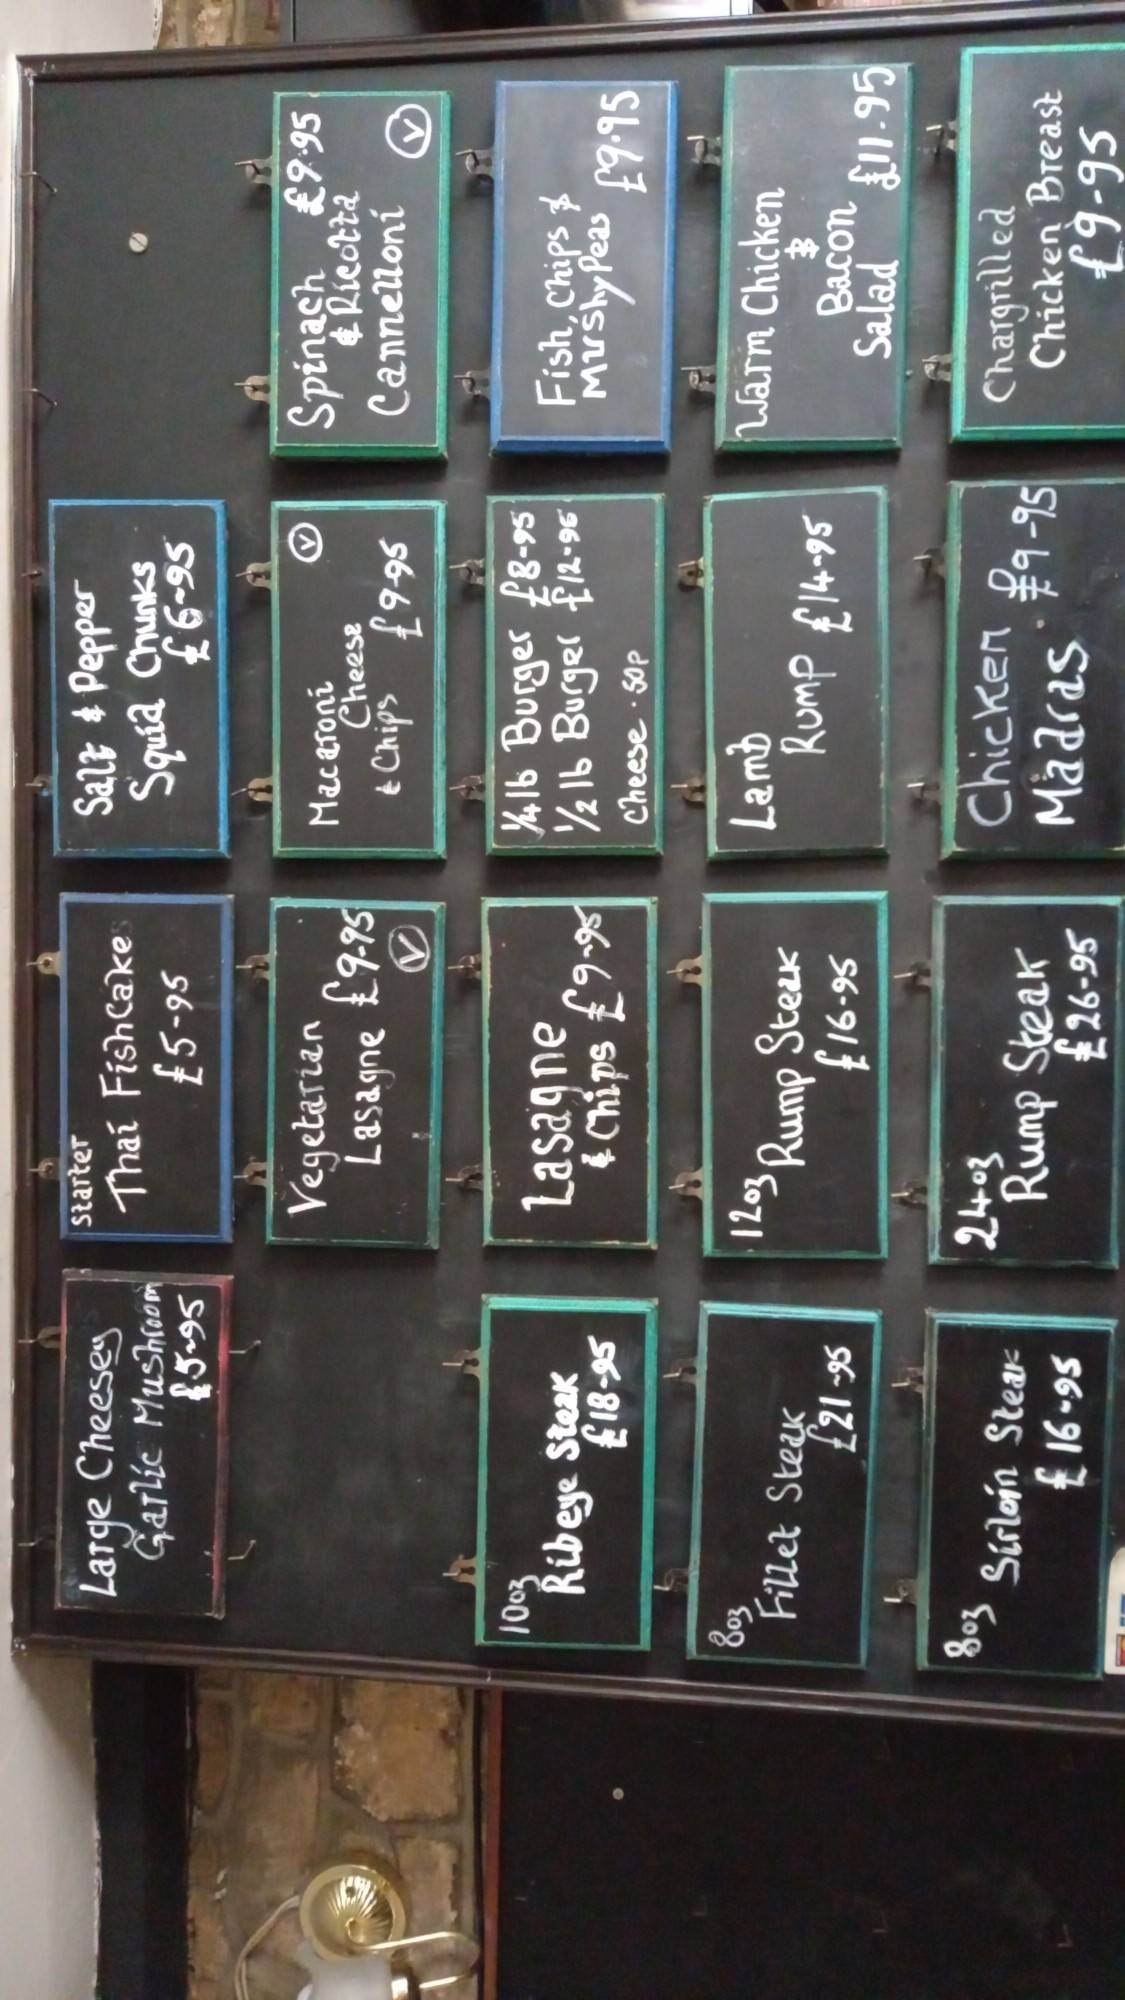 Large Cheesey
Garlic Mushroom
£5-95
Starter
Thai Fishcakes
£5-95
Salt & Pepper
Squid Chunks
£6-95
Vegetarian
Lasagne £9-95
V
Macaroni
Cheese
& Chips £9-95
V
Spinach £9.95
& Ricotta
Cannelloni
V
10oz
Ribeye Steak
£18-95
Lasagne
& Chips £9-95
1/4 lb Burger £8-95
1/2 lb Burger £12-95
Cheese. 50p
Fish, Chips &
Mushy Peas £9.95
8oz
Fillet Steak
£21-95
12oz
Rump Steak
£16-95
Lamb
Rump £14-95
Warm Chicken
&
Bacon
Salad £11-95
8oz
Sirloin Steak
£16-95
24oz
Rump Steak
£26-95
Chicken £9-95
Madras
Chargrilled
Chicken Breast
£9-95